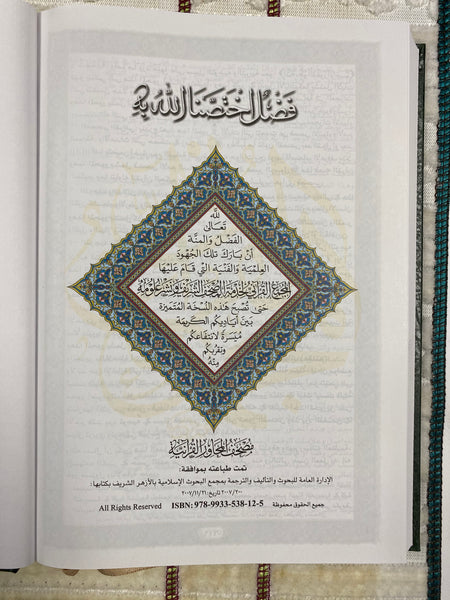 فَضْلٌ اخْتَصَّنَا اللهُ بِهِ
لله
تَعَالَى
الفَضْلُ وَالمِنَّة
أنْ بَارَكَ تِلكَ الجُهُودَ
العِلمِيَّة وَالفَنِّيَة الَّتِي قَامَ عَلَيْهَا
المجمع القرآني لخدمة المصحف الشريف ونشر علومه
حَتَّى تُصْبحَ هَذِه النُّسْخَة المُتَمَيِّزَة
بَينَ أيَادِيكُم الكَرِيمَة
مُيَسَّرَةً لانتِفَاعِكُم
وَتَقَرُّبِكُم
مِنْهُ
مصحف المحاور القرآنية
تمت طباعته بموافقة:
الإدارة العامة للبحوث والتأليف والترجمة بمجمع البحوث الإسلامية بالأزهر الشريف بكتابها:
All Rights Reserved ISBN: 978-9933-538-12-5 جميع الحقوق محفوظة